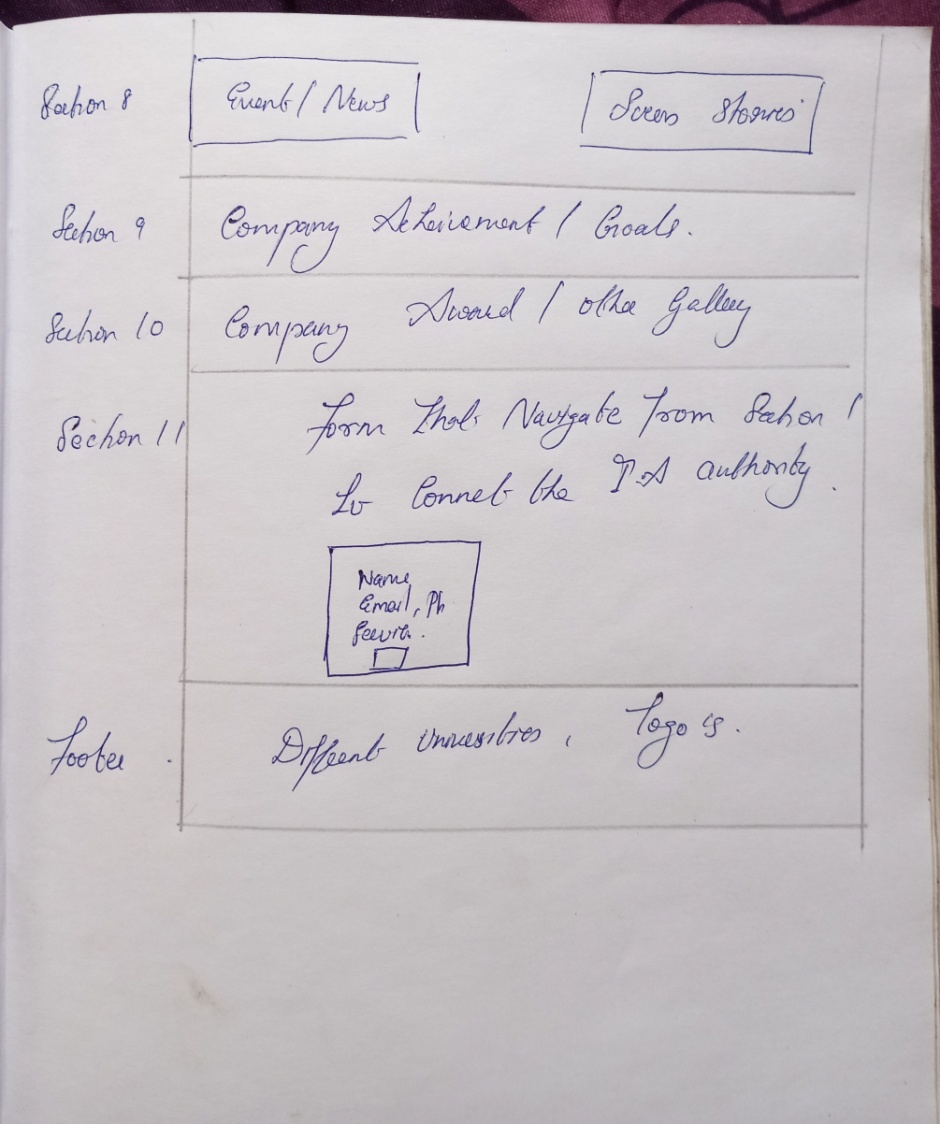 Section 8 Event / News Stories
Section 9 Company Acheivement / Goals.
Section 10 Company Award / other Gallery
Section 11 Form That Navigate From Section 1
to Connet the I.A authority.
Name
Email, Ph
Footer . Different universities, logo's.